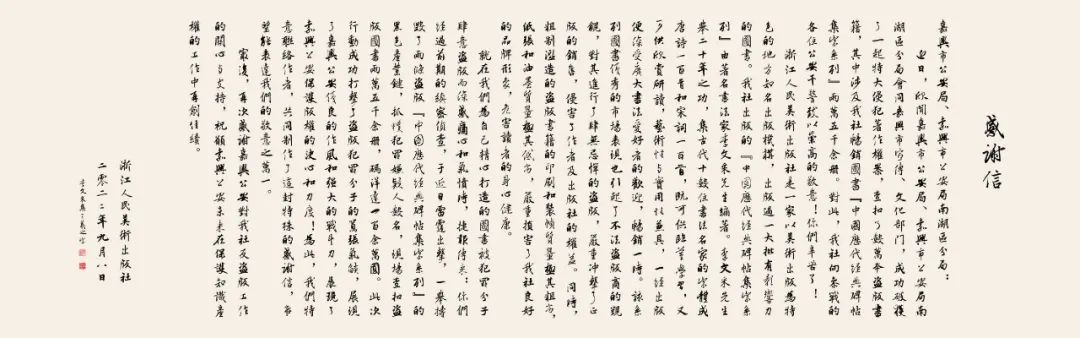 感谢信
嘉兴市公安局、嘉兴市公安局南湖区分局：
近日，欣闻嘉兴市公安局、嘉兴市公安局南
湖区分局会同嘉兴市宣传、文化部门，成功破获
了一起特大侵犯著作权案，查扣了餘万令盗版书
籍，其中涉及我社畅销图书『中国历代经典碑帖
集字系列』两万五千余册。对此，我社向参战的
各位公安干警致以崇高的敬意！你们辛苦了！
浙江人民美术出版社是一家以美术出版为特
色的地方知名出版机构，出版过一大批有影响力
的图书。我社出版的『中国历代经典碑帖集字系
列』由著名书法家李文采先生编著。李文采先生
举二十年之功，集古代十余位书法名家的字体成
唐诗一百首和宋词一百首，既可供临摹学习，又
可供欣赏研读，艺术性与实用性兼具，一经出版
便深受广大书法爱好者的欢迎，畅销一时。该系
列图书优秀的市场表现也引起了不法盗版商的觊
觎，对其进行了肆无忌惮的盗版，严重冲击了正
版的销售，侵害了作者及出版社的权益。同时，
粗制滥造的盗版书籍的印刷和装帧质量极其粗劣，
纸张和油墨质量极其低劣，严重损害了我社良好
的品牌形象，危害读者的身心健康。
就在我们为自己精心打造的图书被犯罪分子
肆意盗版而深感痛心和气愤时，捷报传来：你们
经过前期的缜密侦查，于近日雷霆出击，一举捣
毁了两条盗版『中国历代经典碑帖集字系列』的
黑色产业链，抓获犯罪嫌疑人数名，现场查扣盗
版图书两万五千余册，码洋达一百余万圆。此次
行动成功打击了盗版犯罪分子的嚣张气焰，展现
了嘉兴公安优良的作风和强大的战斗力，展现了
嘉兴公安保护版权的决心和力度！为此，我们特
意联络作者，共同制作了这封特殊的感谢信，希
望能表达我们的敬意之万一。
最后，再次感谢嘉兴公安对我社反盗版工作
的关心与支持，祝愿嘉兴公安未来在保护知识产
权的工作中再创佳绩。
浙江人民美术出版社
二零二二年九月八日